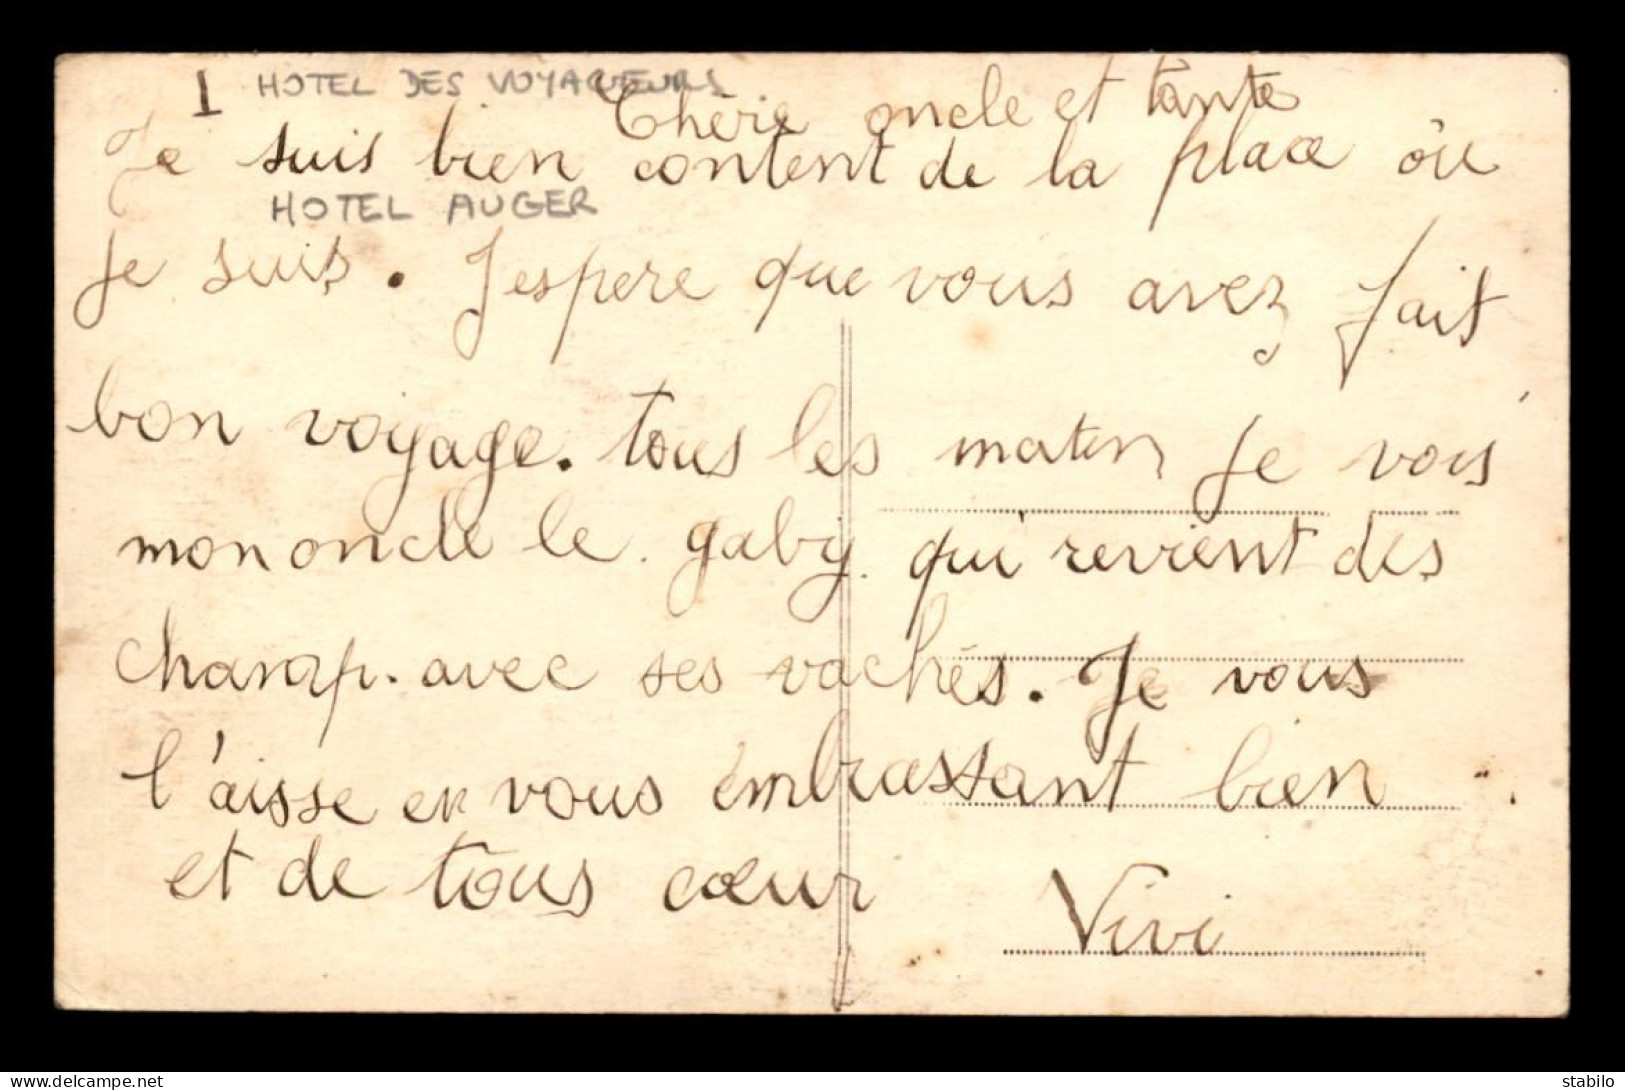 I HOTEL DES VOYAGEURS
Chère oncle et tante
Je suis bien content de la place où
HOTEL AUGER
je suis. J'espere que vous avez fait
bon voyage. tous les maten Je vois
mon oncle le gaby qui revient des
champ. avec ses vaches. Je vous
l'aisse en vous émbrassant bien
et de tous cœur
Vivi
delcampe.net
stabilo